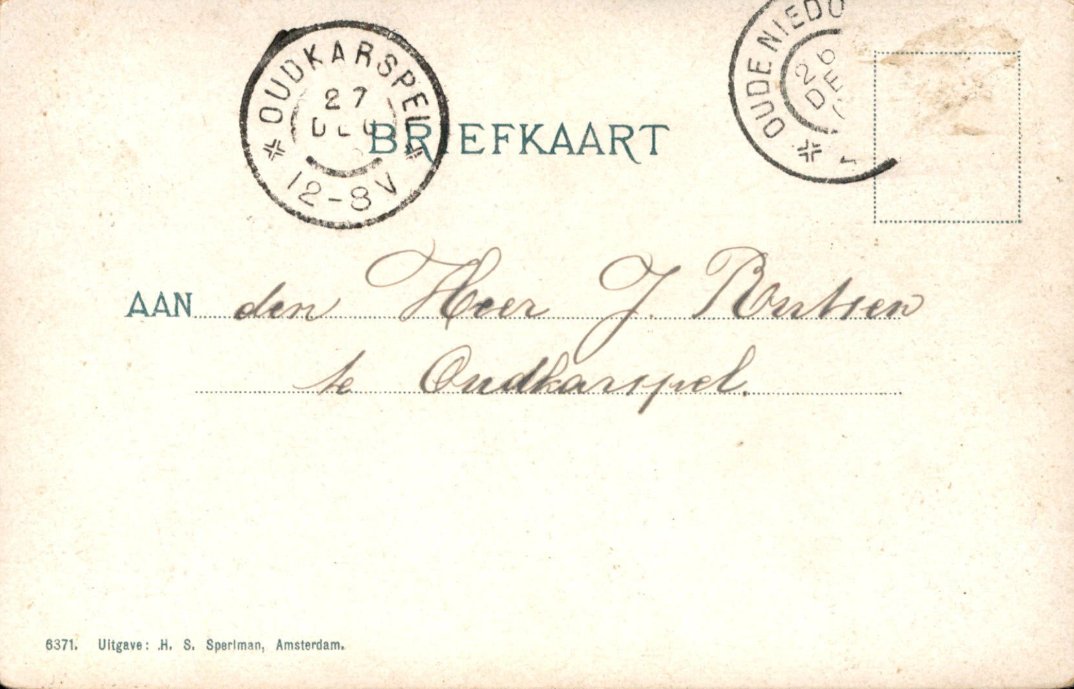 OUDKARSPEL
27
DEC
12-8V
OUDE NIEDO
26
DE
BRIEFKAART
AAN den Heer J. Rutsen
te Oudkarspel.
6371. Uitgave: H. S. Sperlman, Amsterdam.